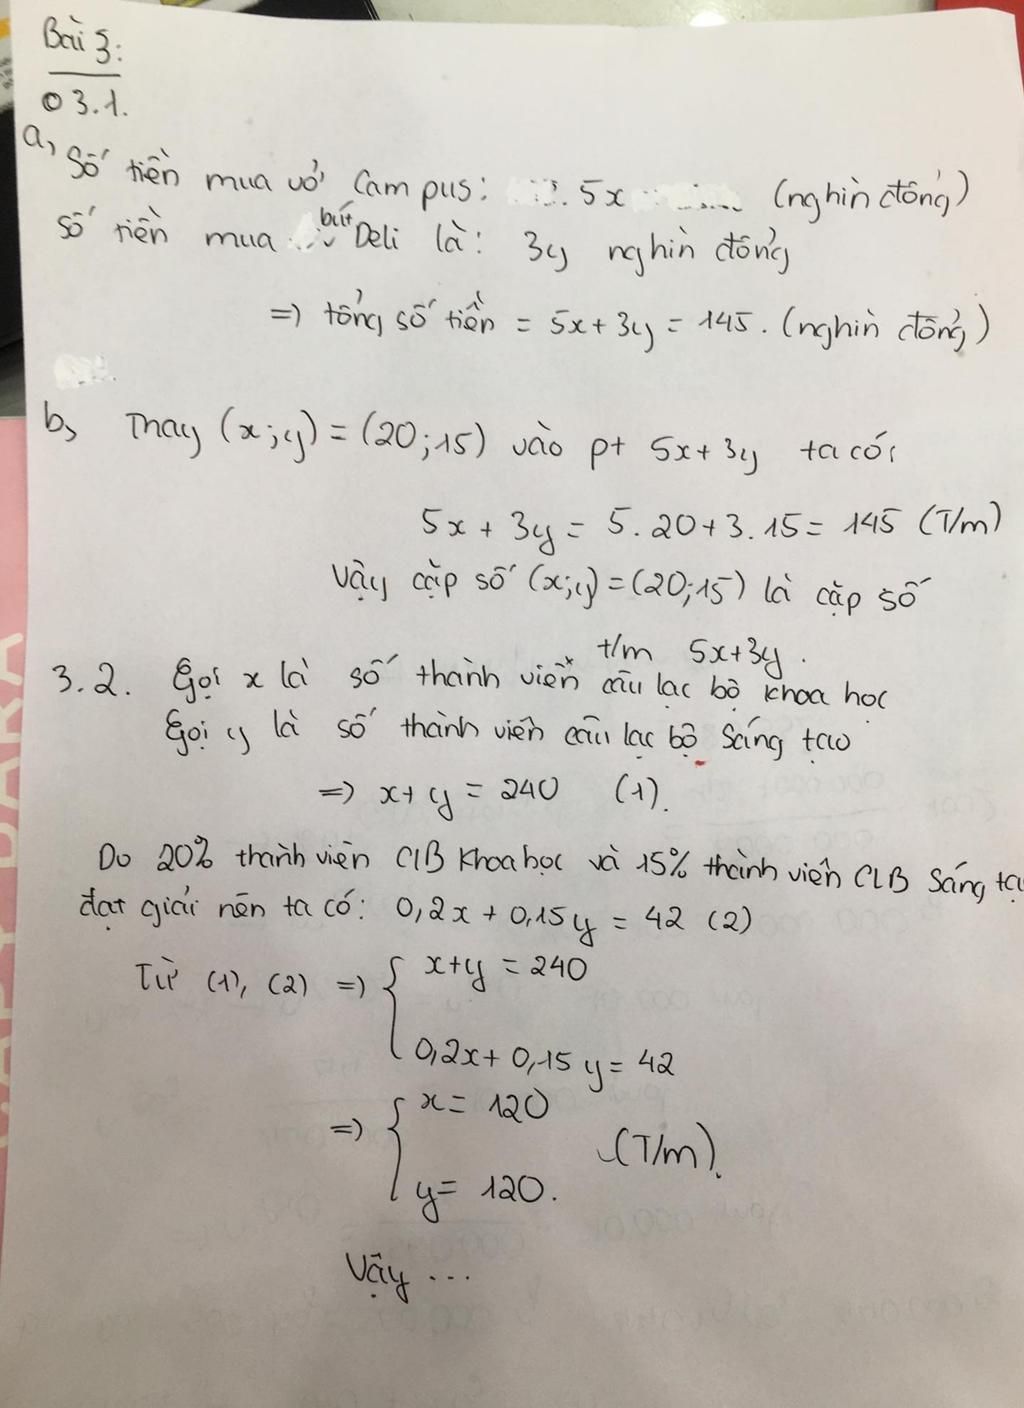 Bài 3:
3.1.
a, Số tiền mua vở Campus: 5x (nghìn đồng)
Số tiền mua bút Deli là: 3y nghìn đồng
=> tổng số tiền = 5x + 3y = 145. (nghìn đồng)
b, Thay (x;y) = (20;15) vào pt 5x + 3y ta có:
5x + 3y = 5.20 + 3.15 = 145 (T/m)
Vậy cặp số (x;y) = (20;15) là cặp số
t/m 5x+3y.
3.2. Gọi x là số thành viên câu lạc bộ khoa học
Gọi y là số thành viên câu lạc bộ Sáng tạo
=> x + y = 240 (1).
Do 20% thành viên ClB Khoa học và 15% thành viên CLB Sáng tạ
đạt giải nên ta có: 0,2x + 0,15y = 42 (2)
Từ (1), (2) => { x+y = 240
0,2x + 0,15y = 42
=> { x = 120
(T/m).
y = 120.
Vậy ...